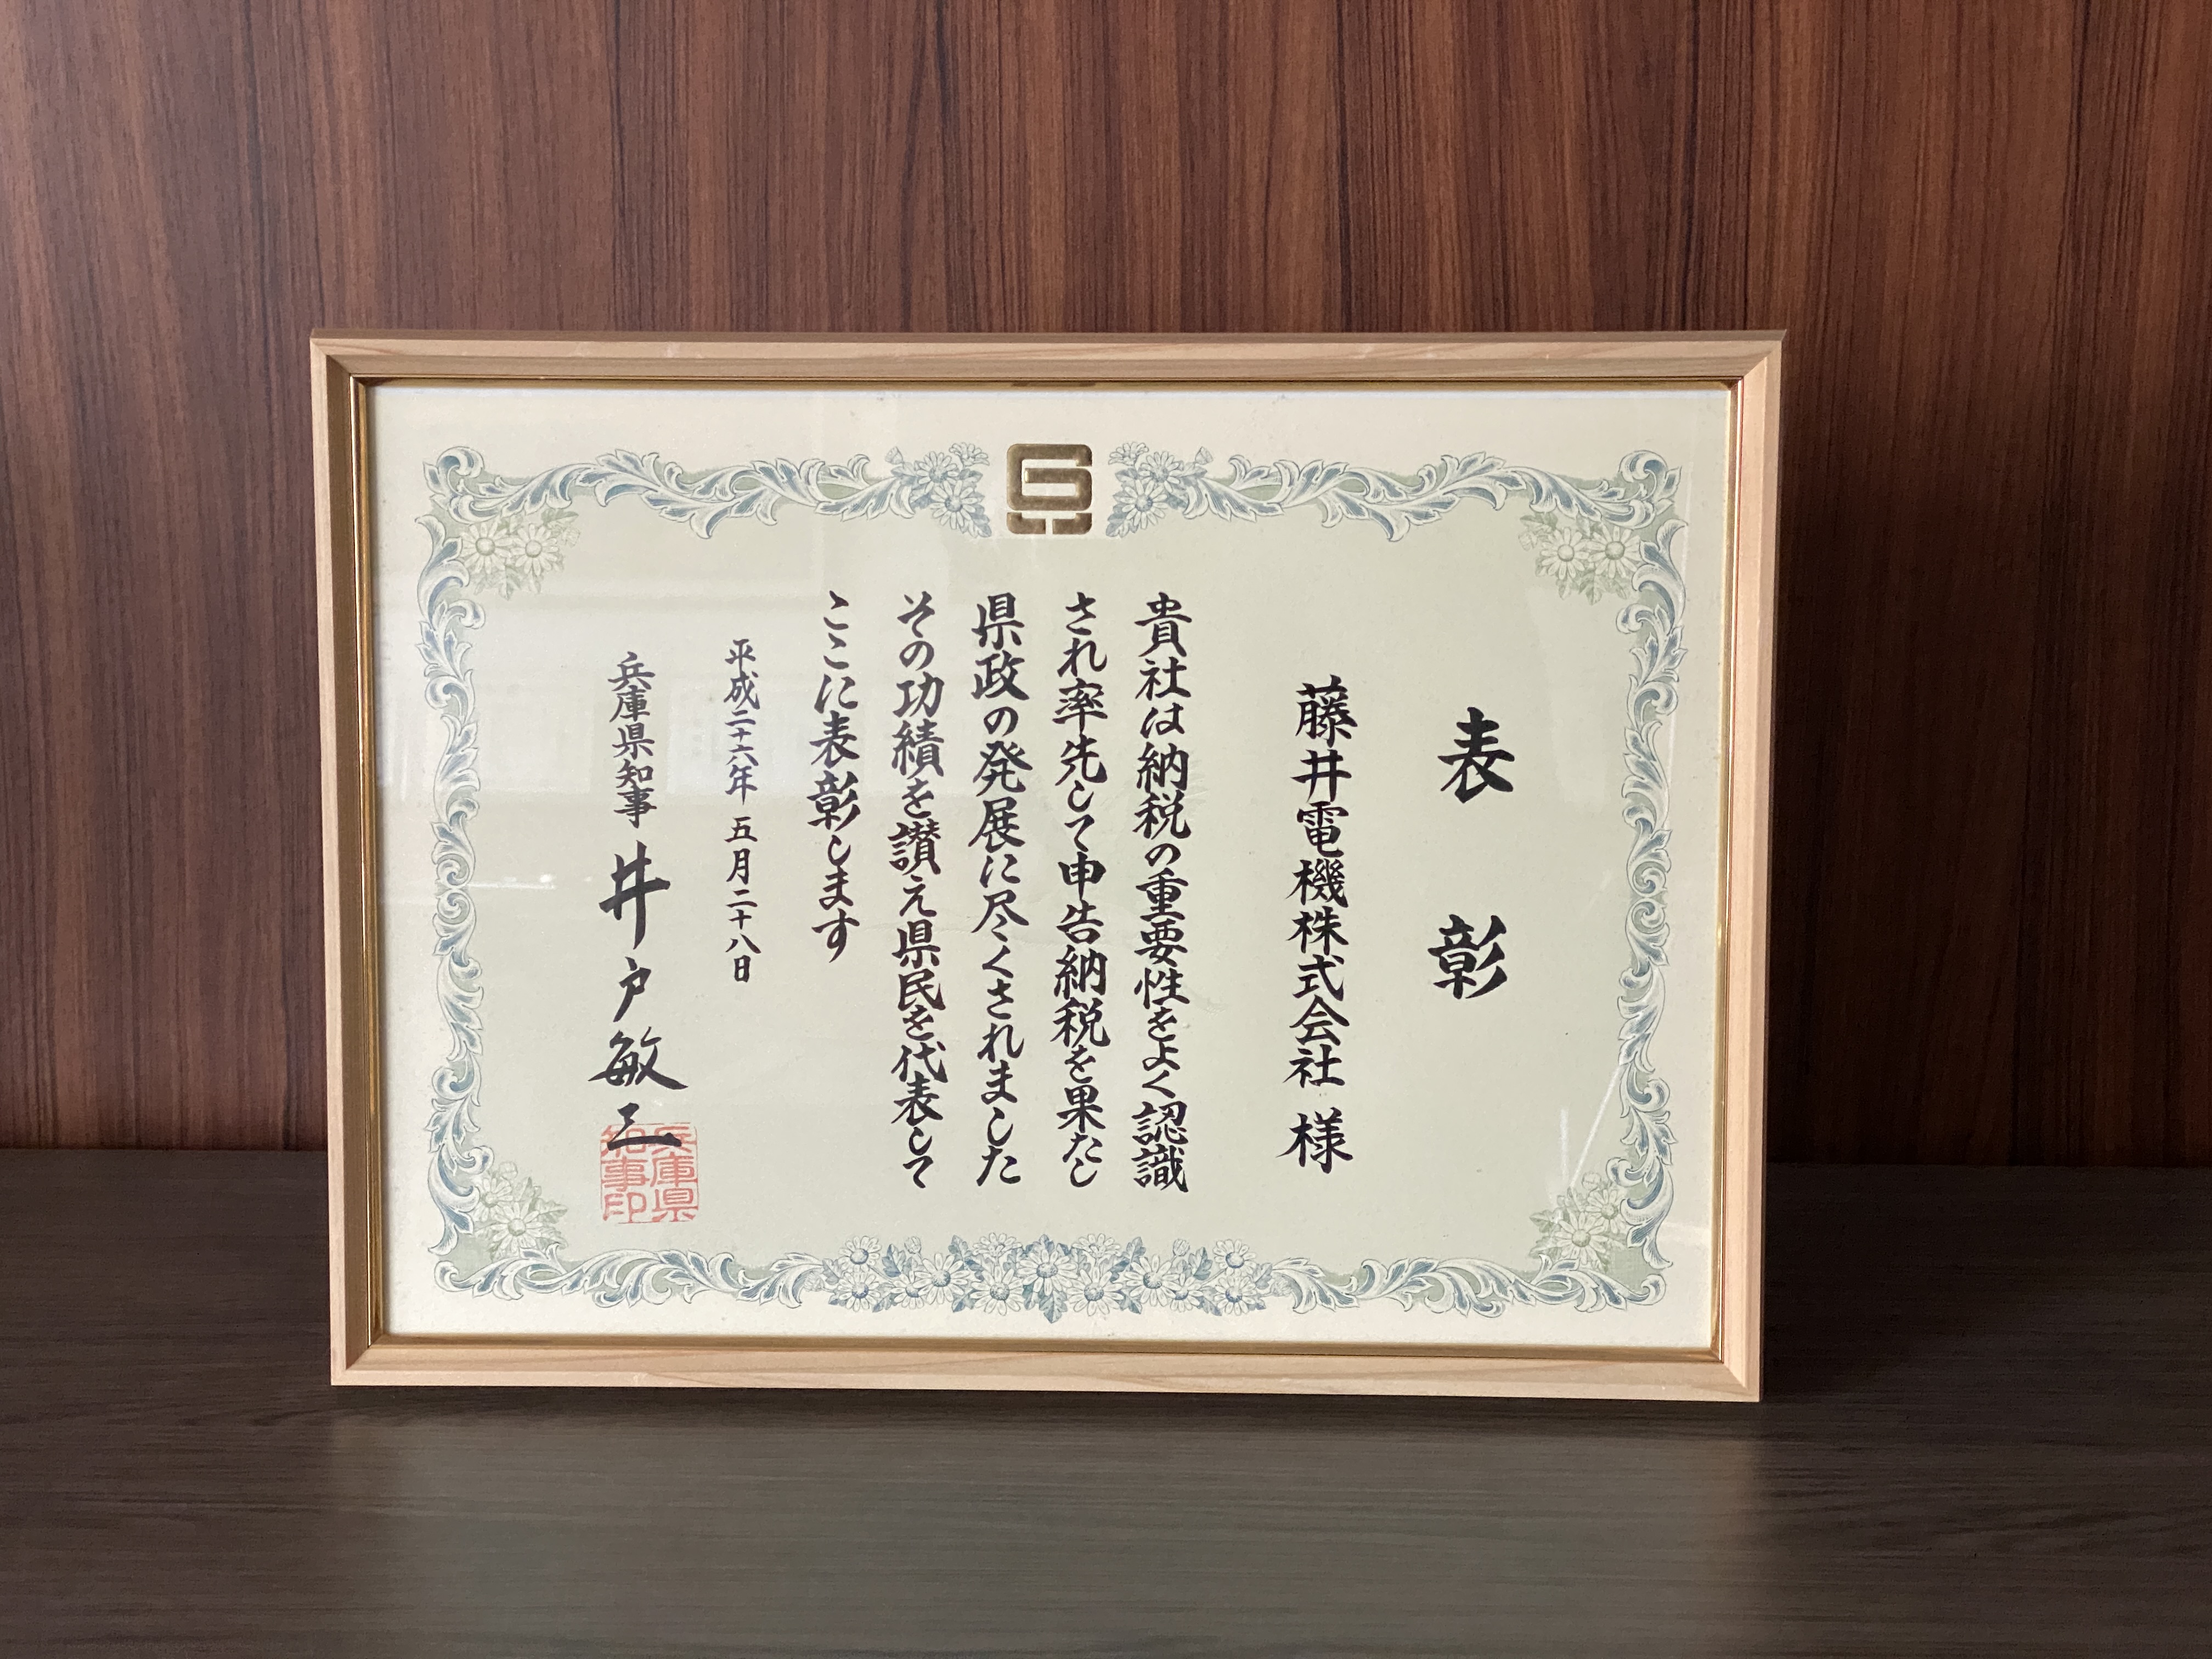 表彰
藤井電機株式会社 様
貴社は納税の重要性をよく認識
され率先して申告納税を果たし
県政の発展に尽くされました
その功績を讃え県民を代表して
ここに表彰します
平成二十六年 五月二十八日
兵庫県知事 井戸敏三
兵庫県
知事印